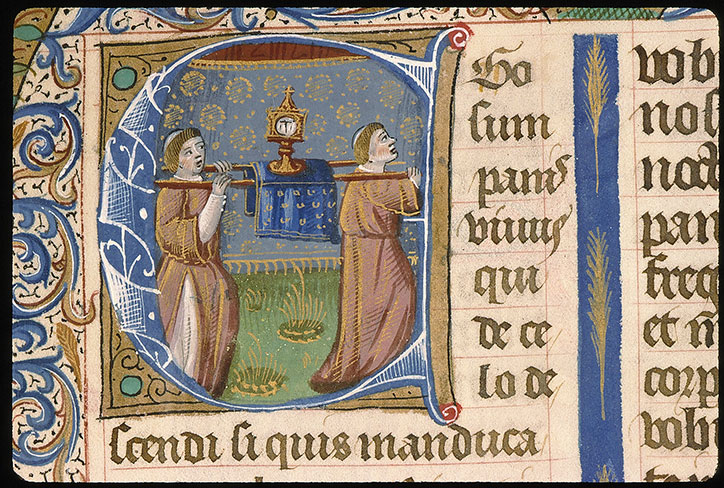 Ego
sum
panis
viuus
qui
de ce
lo de
scendi si quis manduca
vob
nos
pan
freg
et
corp
vobi